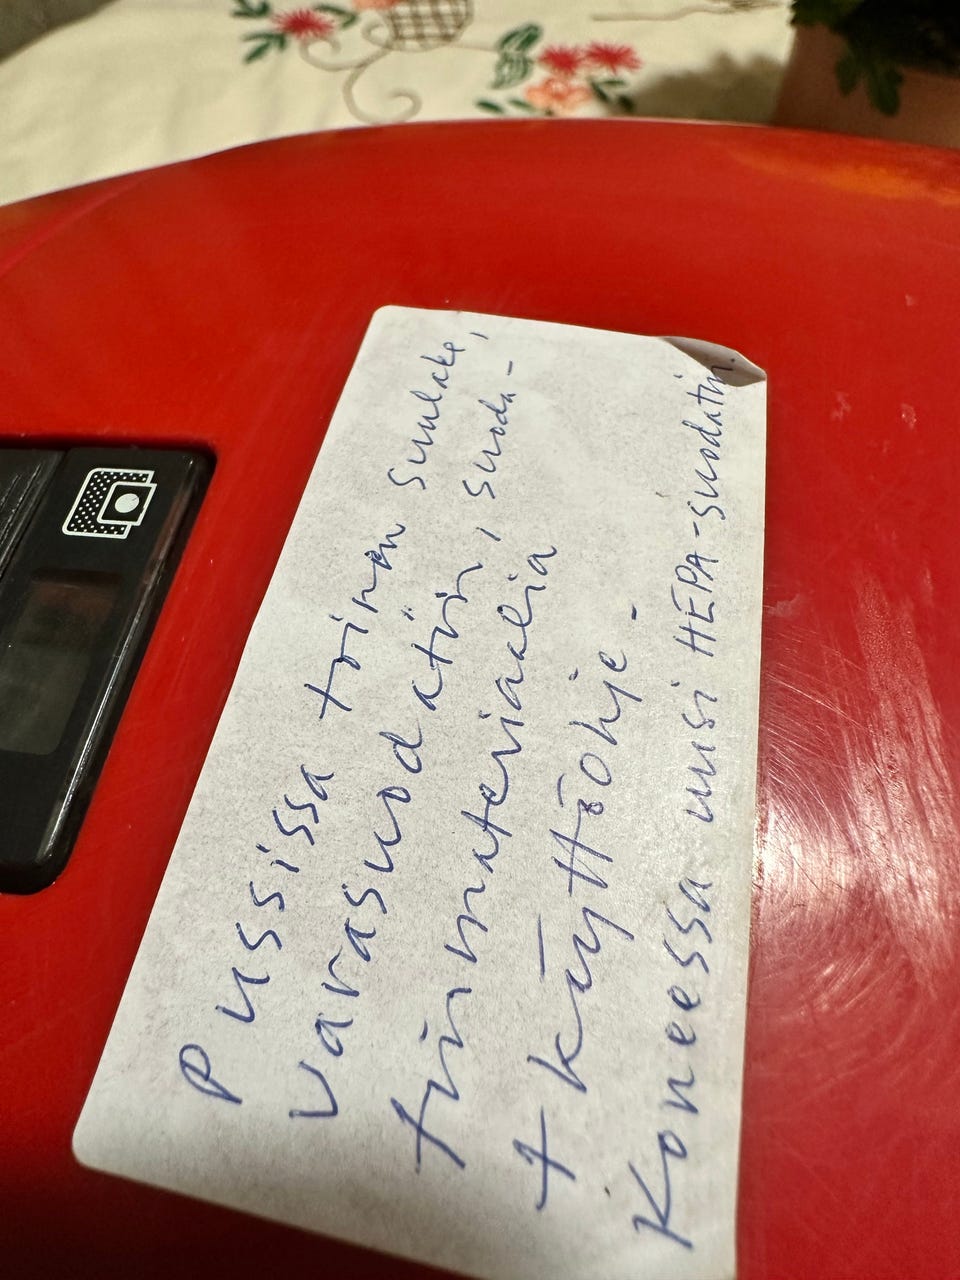 Pussissa trimmon sulake,
varasuodatin, suoda-
tinmateriaalia
+ käyttöohje.
Koneessa uusi HEPA-suodatin.